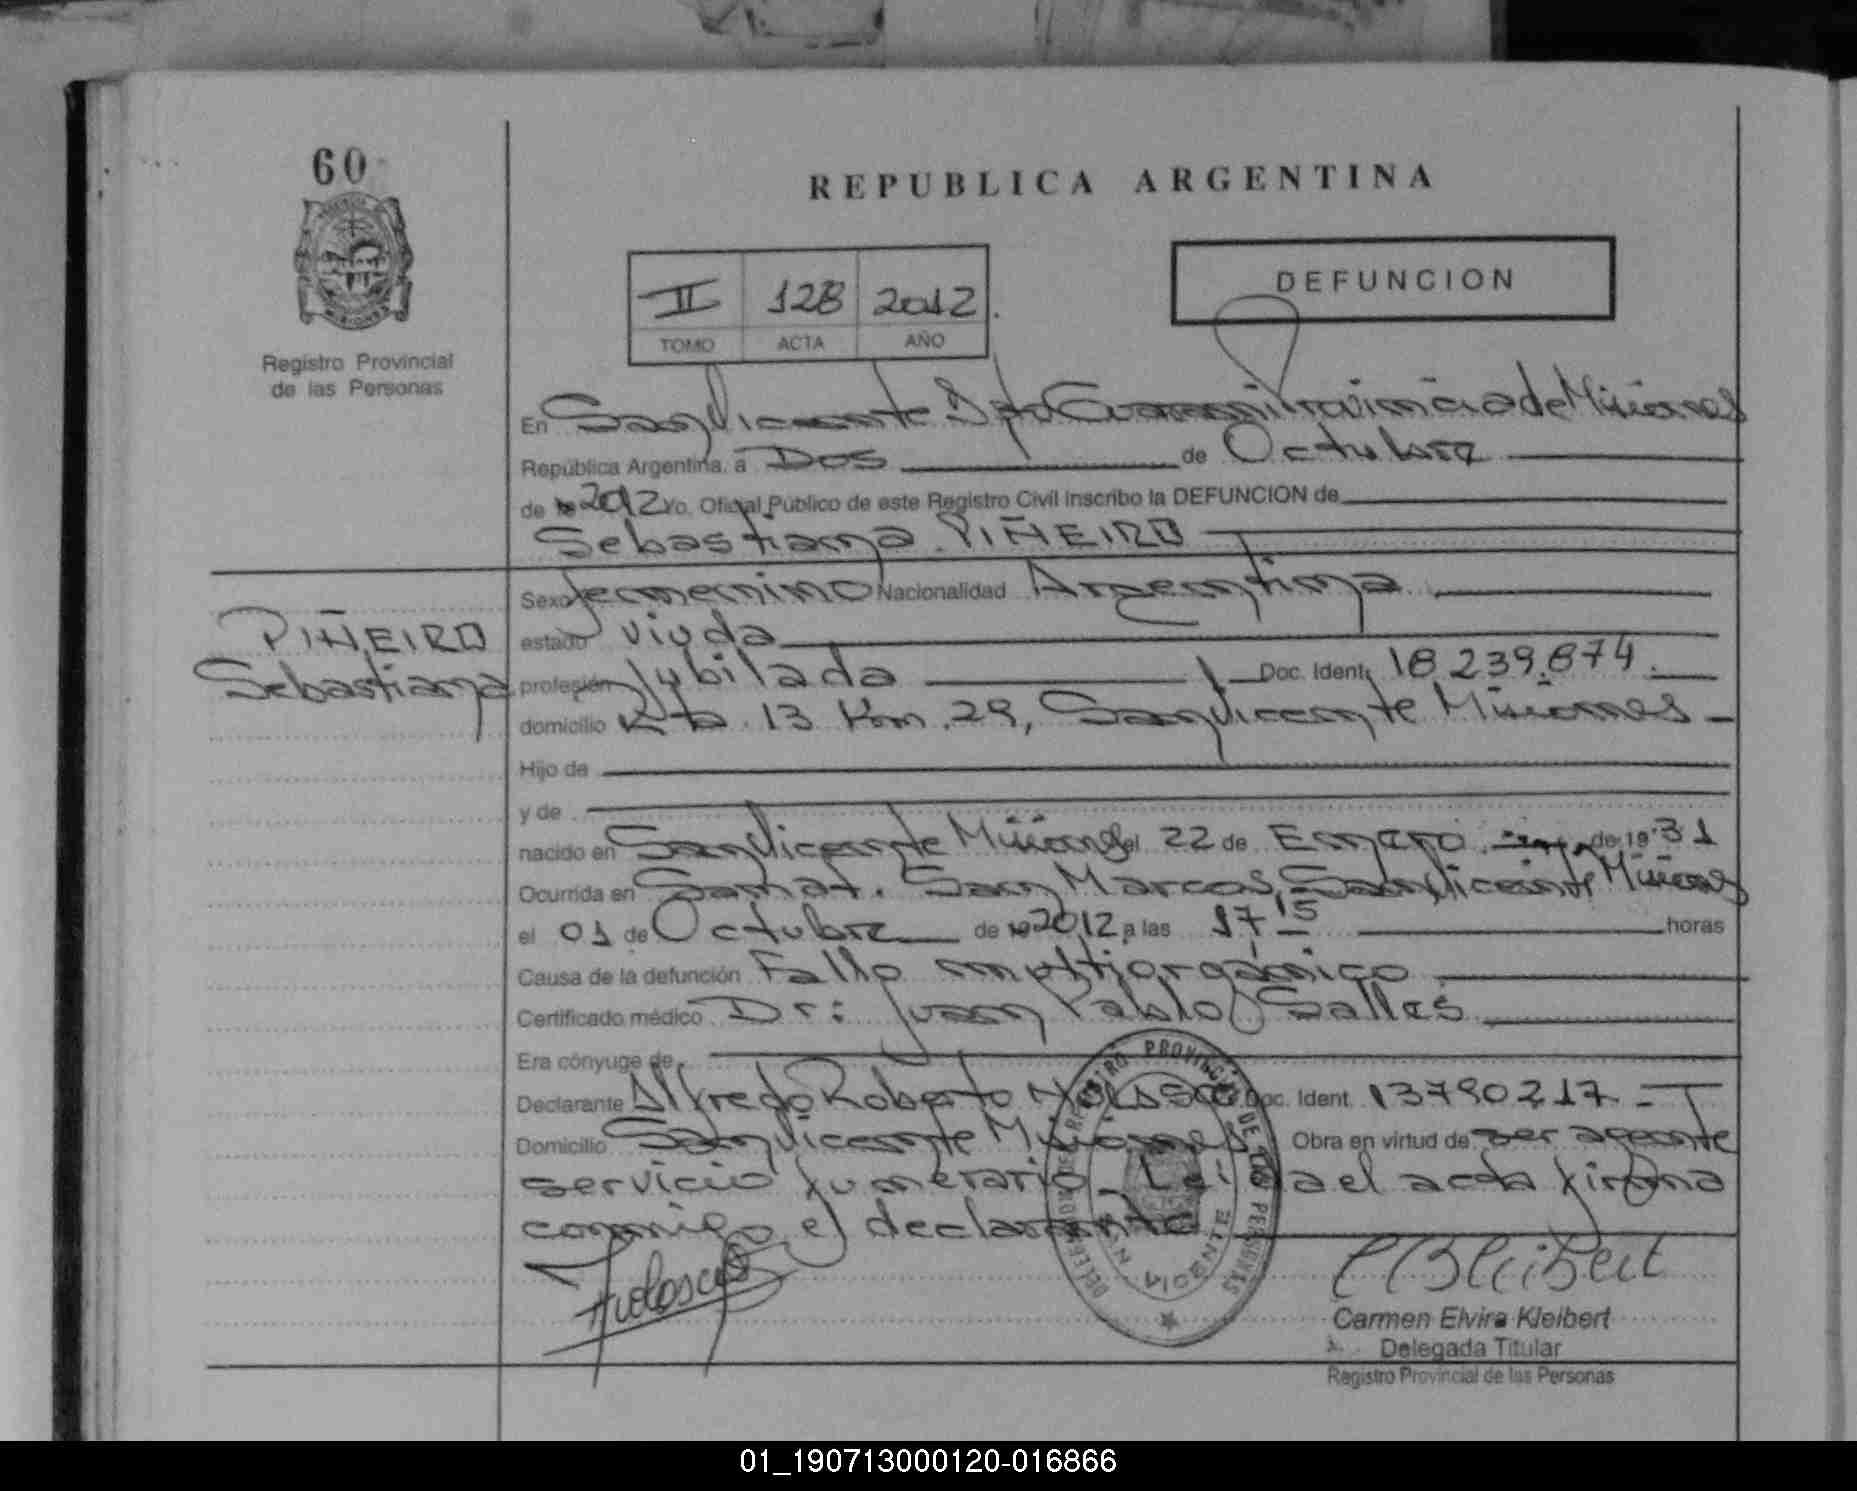 60
REPUBLICA ARGENTINA
DEFUNCION
II 128 2012
TOMO ACTA AÑO
Registro Provincial
de las Personas
En San Vicente Dpto Guaraní Provincia de Misiones
República Argentina, a Dos de Octubre
de 2012 Yo, Oficial Público de este Registro Civil inscribo la DEFUNCION de
Sebastiana PIÑEIRO
PIÑEIRO
Sebastiana
Sexo femenino Nacionalidad Argentina
estado viuda
profesión Jubilada Doc. Ident. 18.239.874.
domicilio Rta 13 Km. 29, San Vicente Misiones
Hijo de
y de
nacido en San Vicente Misiones el 22 de Enero de 19 31
Ocurrida en Sanat. San Marcos, San Vicente Misiones
el 01 de Octubre de 2012 a las 17 15 horas
Causa de la defunción Fallo multiorgánico
Certificado médico Dr: Juan Pablo Salles
Era cónyuge de
Declarante Alfredo Roberto Doc. Ident. 13790217
Domicilio San Vicente Misiones Obra en virtud de ser agente
servicio funerario. Leida el acta firma
conmigo el declarante
REGISTRO PROVINCIAL DE LAS PERSONAS
DELEGACION
SAN VICENTE
Carmen Elvira Kleibert
Delegada Titular
Registro Provincial de las Personas
01_190713000120-016866